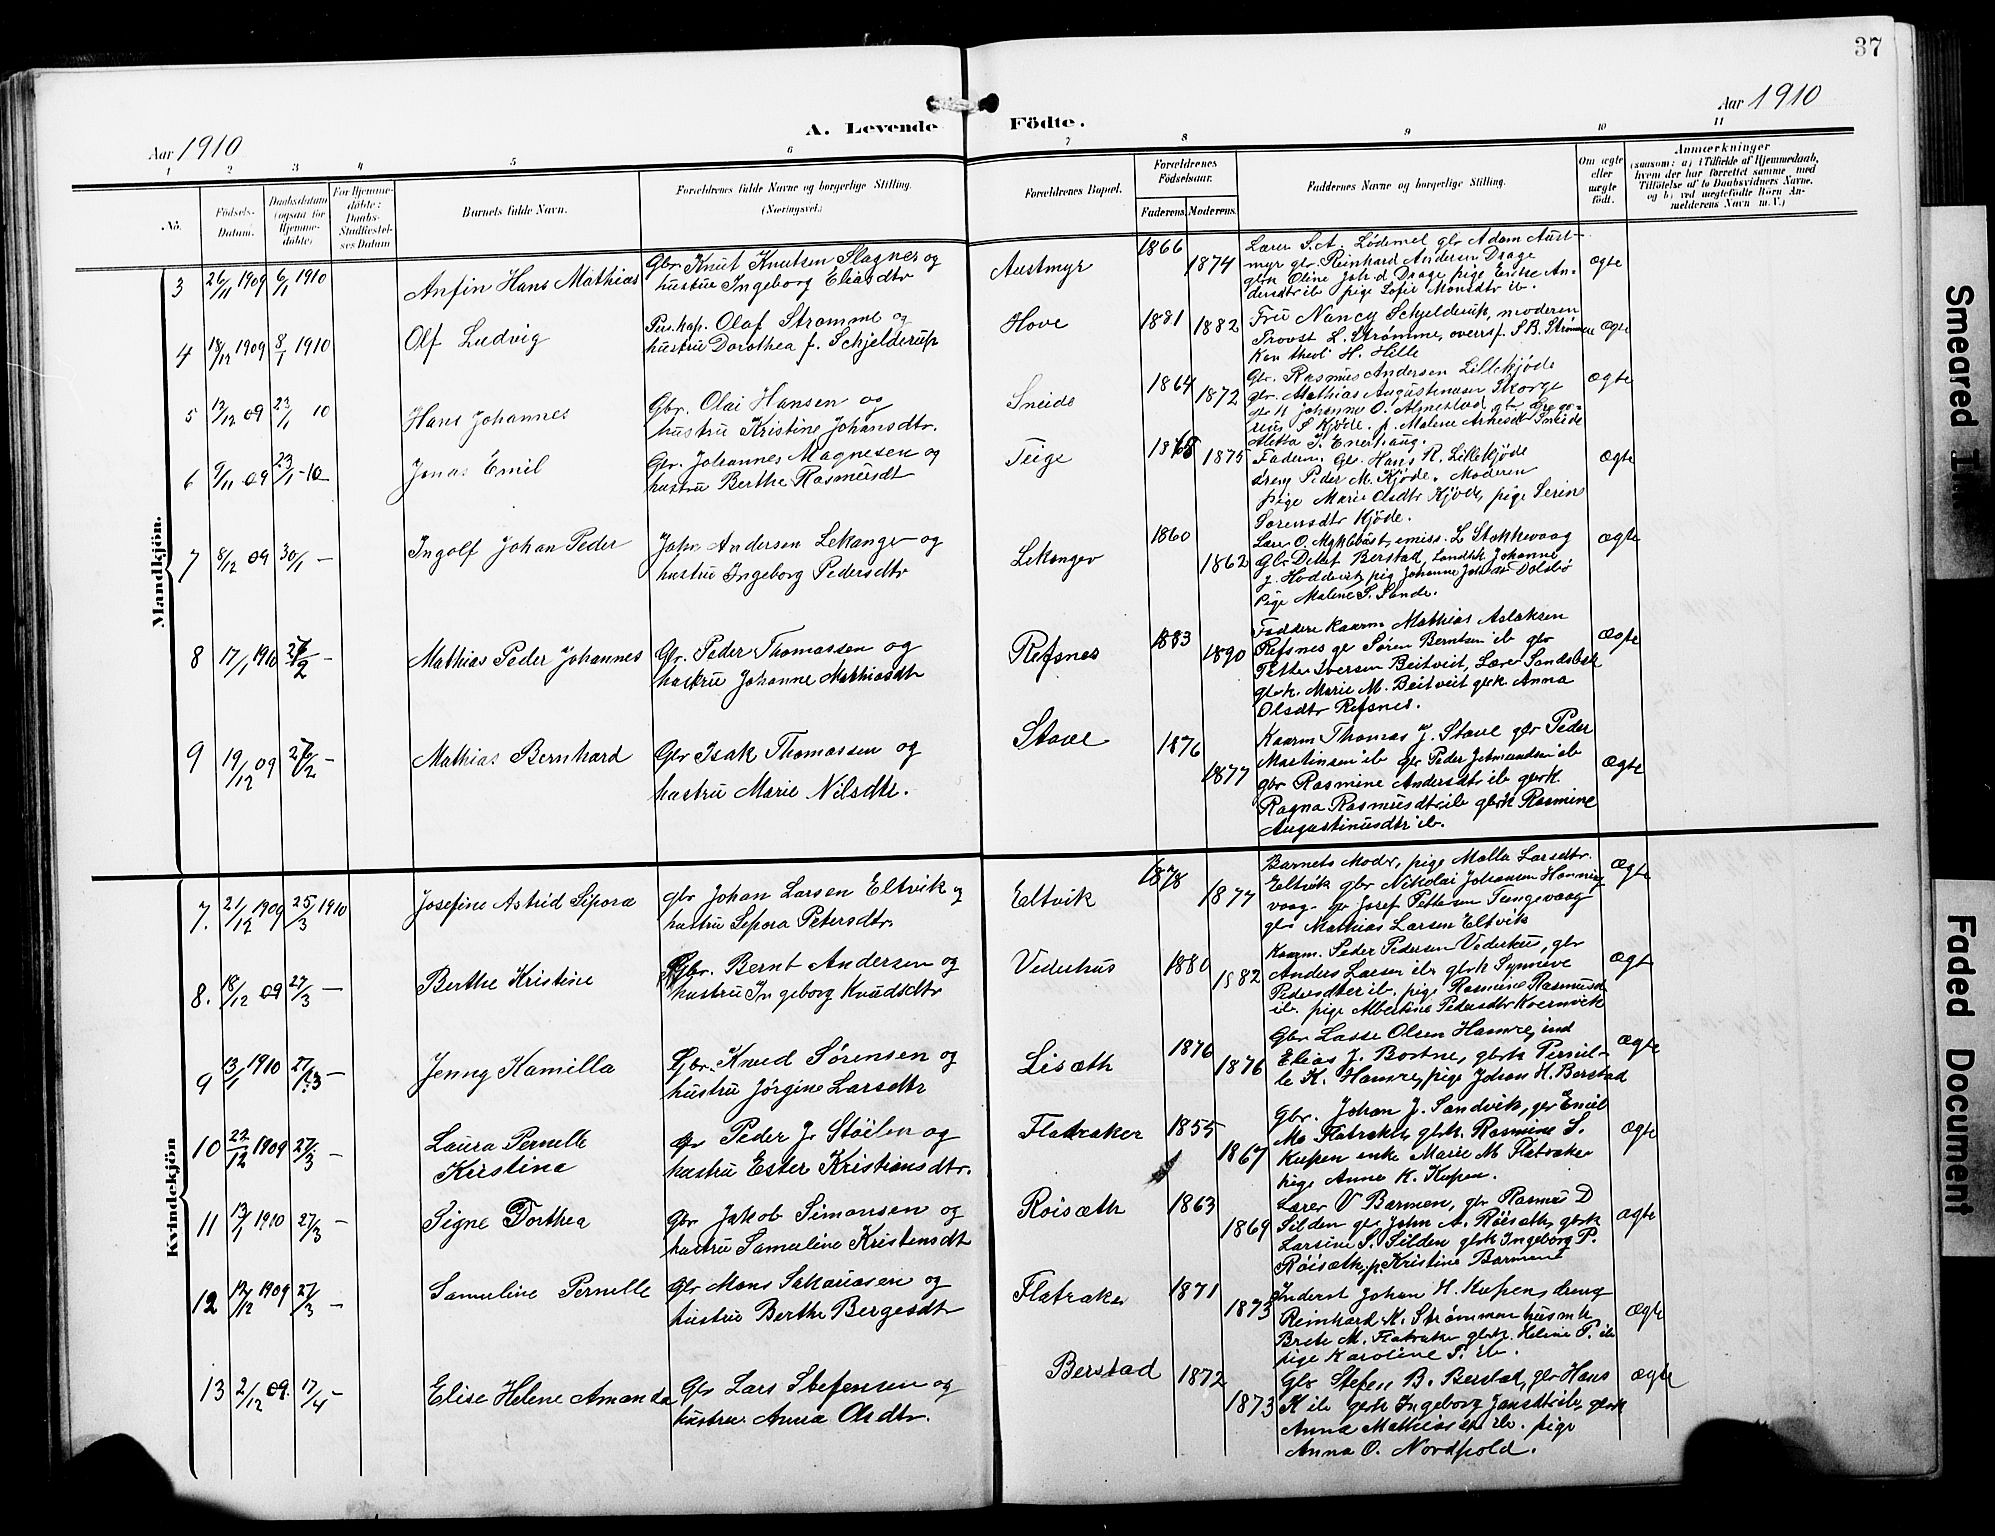 37
Aar 1910
A. Levende Födte.
Aar 1910
1 2 3 4 5 6 7 8 9 10 11
No.
Födsels-
Datum.
Daabsdatum
(ogsaa for
Hjemme-
döbte)
For Hjemme-
döbte:
Daabs-
Stadfæstel-
ses Datum
Barnets fulde Navn.
Forældrenes fulde Navne og borgerlige Stilling.
(Næringsvei.)
Forældrenes Bopæl.
Forældrenes
Födselsaar.
Faderens. Moderens.
Faddernes Navne og borgerlige Stilling.
Om ægte
eller
uægte
født.
Anmærkninger
(saasom: a) i Tilfælde af Hjemmedaab,
hvem der har forrettet samme, med
Tilföielse af to Daabsvidners Navne,
og b) ved uægtefödte Börn An-
melderens Navn m. V.)
Mandkjön.
3 26/11 1909 6/1 1910 Anfin Hans Mathias
Gbr. Knut Knutsen Slagnes og
hustru Ingeborg Eliasdtr
Austmyr 1866 1874
Lærer S. A. Lødemel gbr Adam Aust-
myr gbr. Reinhard Andersen Drage
gbrk Oline Joh.d Drage, pige Enike An-
dersdtr ib pige Sofie Monsdtr ib.
ægte
4 18/12 1909 8/1 1910 Olf Ludvig
Pers.kap. Olaf Strømme og
hustru Dorothea f. Schjelderup
Hove 1881 1882
Fru Nancy Schjelderup, moderen
Provst L. Strømme, overrsf. S. B. Strømme
Kan theol H. Hille
ægte
5 12/12 09 23/1 10 Hans Johannes
Gbr. Olai Hansen og
hustru Kristine Johansdtr.
Sneide 1864 1872
Gbr. Rasmus Andersen Lillekjøde
gbr. Mathias Augustinusen Skorge
Johanne O. Alnestad, gb. Grego-
rius S Kjøde. p. Malene Arnesdt Sneide
Aletta J. Enerhaug.
ægte
6 9/11 09 23/1 - 10 Jonas Emil
Gbr. Johannes Magnesen og
hustru Berthe Rasmusdt
Teige 1865 1875
Faderen, Gbr. Hans R. Lillekjøde
dreng Peder M. Kjøde. Moderen
pige Marie Olsdtr Kjøde, pige Serine
Sørensdtr Kjøde.
ægte
7 8/12 09 30/1 - Ingolf Johan Peder
John Andersen Lekanger og
hustru Ingeborg Pedersdtr
Lekanger 1860 1862
Lærer O. Myklebust, emiss. L Stokkevaag
Gbr Detlef Berstad, Landhl. Johanne
J. Hoddevik, pig Johanne Dalsbø
Pige Malene S. Sande.
ægte
8 17/1 1910 27/2 - Mathias Peder Johannes
Gbr. Peder Thomassen og
hustru Johanne Mathiasdt
Refsnes 1883 1890
Faddere kaarm Mathias Aslaksen
Refsnes gbr Søren Berntsen ib gbr
Petter Iversen Beitveit, Lærer Sandsbak
gbrk. Marie M. Beitveit gbrk. Anna
Olsdtr Refsnes.
ægte
9 19/12 09 27/2 - Mathias Bernhard
Gbr Isak Thomassen og
hustru Marie Nilsdtr.
Stave 1876 1877
Kaarm Thomas J. Stave gbr Peder
Martinsen ib gbr Peder Johannesen ib
gbr Rasmine Andersdtr ib gbrk
Ragna Rasmusdtr ib gbrk Rasmine
Augustinusdtr ib.
ægte
Kvindekjön
7. 21/12 1909 25/3 1910 Josefine Astrid Sipora
gbr Johan Larsen Eltvik og
hustru Sepora Petersdtr.
Eltvik 1878 1877
Barnets Moder, pige Malla Larsdtr.
Eltvik gbr Nikolai Johansen Honning-
vaag gbr Josef Pettersen Tungevaag
gbr Mathias Larsen Eltvik
ægte
8. 18/12 09 27/3 - Berthe Kristine
Gbr. Bernt Andersen og
hustru Ingeborg Knudsdtr
Vederhus 1880 1882
Kaarm. Peder Pedersen Vederhus, gbr
Anders Larsen ib gbrk Synneve
Pedersdtter ib. pige Rasmine Rasmusd
ib. pige Albertine Pedersdtr Kvernvik
ægte
9 13/1 1910 27/3 - Jenny Kamilla
Gbr. Knud Sørensen og
hustru Jørgine Larsdtr
Lisæth 1876 1876
Gbr Lasse Olsen Hamre, ind
Elias J. Bortne, gbrk Pernil-
le K. Hamre, pige Johan H. Berstad
ægte
10 22/12 1909 27/3 - Laura Pernelle
Kirstina
gbr Peder J. Støilen og
hustru Ester Kristiansdtr.
Flatraker 1855 1867
Gbr. Johan J. Sandvik, gbr Emil
Mo Flatraker gbrk. Rasmine S.
Kupen enke Marie M. Flatraker
pige Anne K. Kupen.
ægte
11 13/1 1910 27/3 - Signe Dorthea
Gbr Jakob Simonsen og
hustru Samueline Kristensdt
Røisæth 1863 1869
Lærer V Barmen, gbr Rasmus D
Silden gbr John A. Røisæth, gbrk
Larsine S. Silden gbrk Ingeborg P.
Røisæth, p. Kristine Barmen
ægte
12 12/12 1909 27/3 - Samueline Pernelle
Gbr Mons Sakariasen og
hustru Berthe Bergesdt
Flatraker 1871 1873
Inderst Johan H. Kupen, dreng
Reinhard K. Strømmen husmk
Brete M. Flatraker gbrk. Heline P. ib
pige Karoline S. ib.
ægte
13 2/12 09. 17/4 - Elise Helene Amanda
Gbr Lars Stefensen og
hustru Anna Olsdtr.
Berstad 1872 1873
Gbr Stefen B. Berstad, gbr Hans
K ib gbrk Ingeborg Jansdtr ib, gbrk
Anna Mathias ib. pige
Anna O. Nordpold.
ægte
Smeared Ink
Faded Document